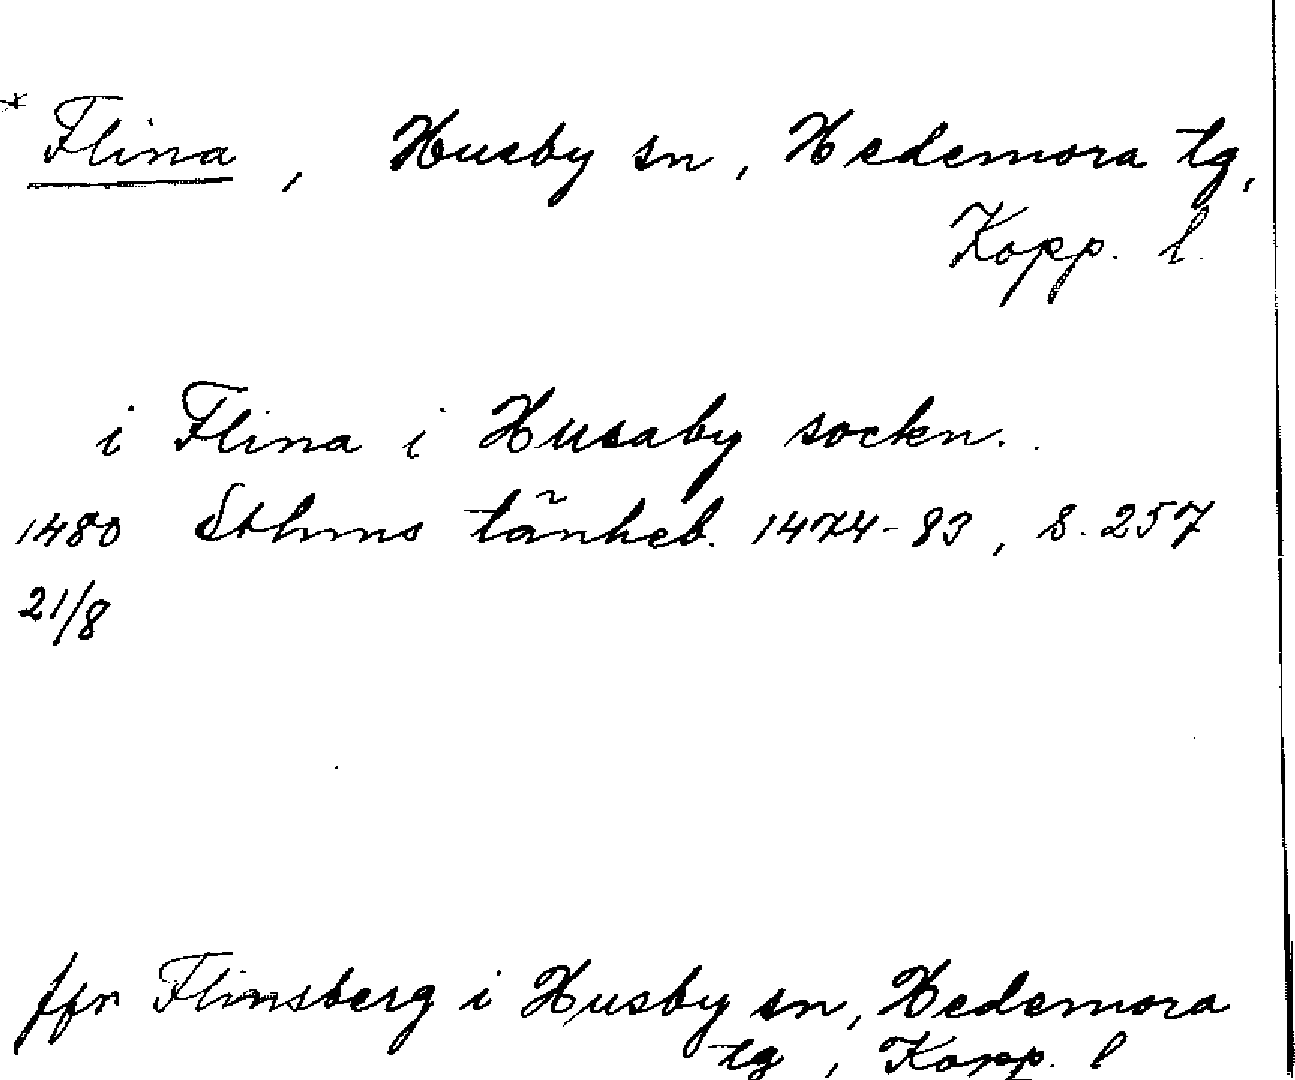 * Flina, Husby sn, Hedemora tg,
Kopp. l.
i Flina i Husaby sockn.
1480 Sthms tänkeb. 1474-83, s. 257
21/8
jfr Flinsberg i Husby sn, Hedemora
tg, Kopp. l